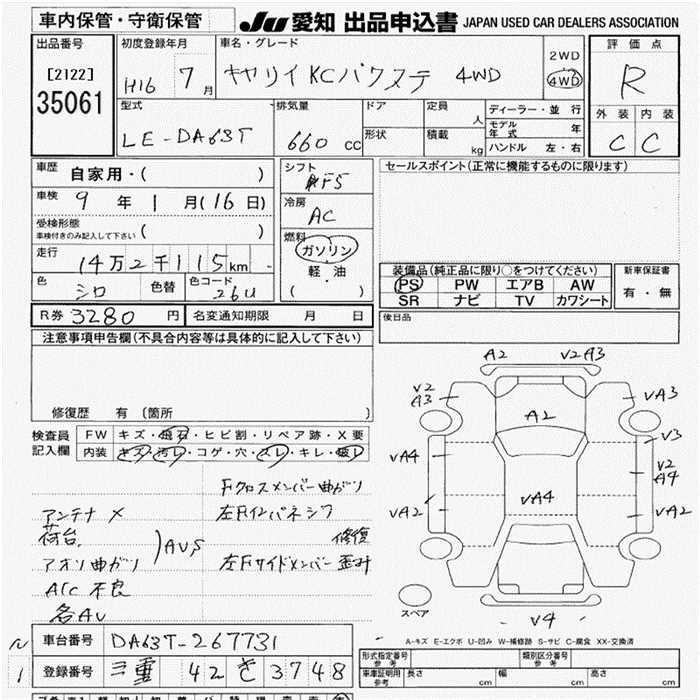 車内保管・守衛保管
JU 愛知 出品申込書 JAPAN USED CAR DEALERS ASSOCIATION
出品番号
[2122]
35061
初度登録年月
H16 7 月
車名・グレード
キャリイ KCパワステ 4WD
2WD
4WD
評価点
R
外装 内装
C C
型式
LE-DA63T
排気量
660 cc
ドア
形状
定員 人
積載 kg
ディーラー・並行
モデル年式 年
ハンドル 左・右
車歴 自家用・( )
車検 9 年 1 月(16 日)
受検形態
車検付きのみ記入して下さい ( )
走行 14万2千115 km
色 シロ 色替 色コード 26U
シフト
F5
冷房
AC
燃料
ガソリン
軽・油
( )
セールスポイント(正常に機能するものに限ります)
装備品(純正品に限り○をつけてください)
PS PW エアB AW
SR ナビ TV カワシート
新車保証書
有・無
R券 3280 円 名変通知期限 月 日
後日品
注意事項申告欄(不具合内容等は具体的に記入して下さい)
修復歴 有 〔箇所 〕
検査員記入欄
FW キズ・飛石・ヒビ割・リペア跡・X要
内装 キズ・汚レ・コゲ・穴・スレ・キレ・破レ
Fクロスメンバー曲ガリ
アンテナ ×
左Fインパネシワ
荷台
修復
アオリ曲ガリ
AUS
左Fサイドメンバー歪ミ
A/C 不良
各AU
A2 V2A3
V2
A3
VA3
A2
V3
VA4
V2
A4
VA4
VA2
VA2
スペア
V4
A-キズ E-エクボ U-凹み W-補修跡 S-サビ C-腐食 XX-交換済
車台番号 DA63T-267731
登録番号 三重 42 き 3748
形式指定番号
参考
類別区分番号
参考
車庫証明用
参考
長さ cm 幅 cm 高さ cm